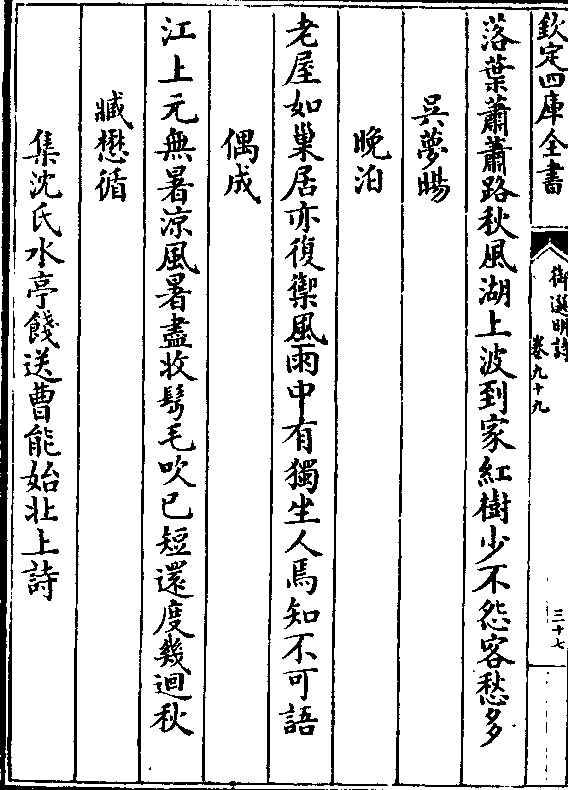 欽定四庫全書
御選明詩
卷九十九
三十七
落葉蕭蕭路秋風湖上波到家紅樹少不怨客愁多
吳夢暘
晚泊
老屋如巢居亦復禦風雨中有獨坐人焉知不可語
偶成
江上元無暑涼風暑盡收鬂毛吹已短還度幾迴秋
臧懋循
集沈氏水亭餞送曹能始北上詩